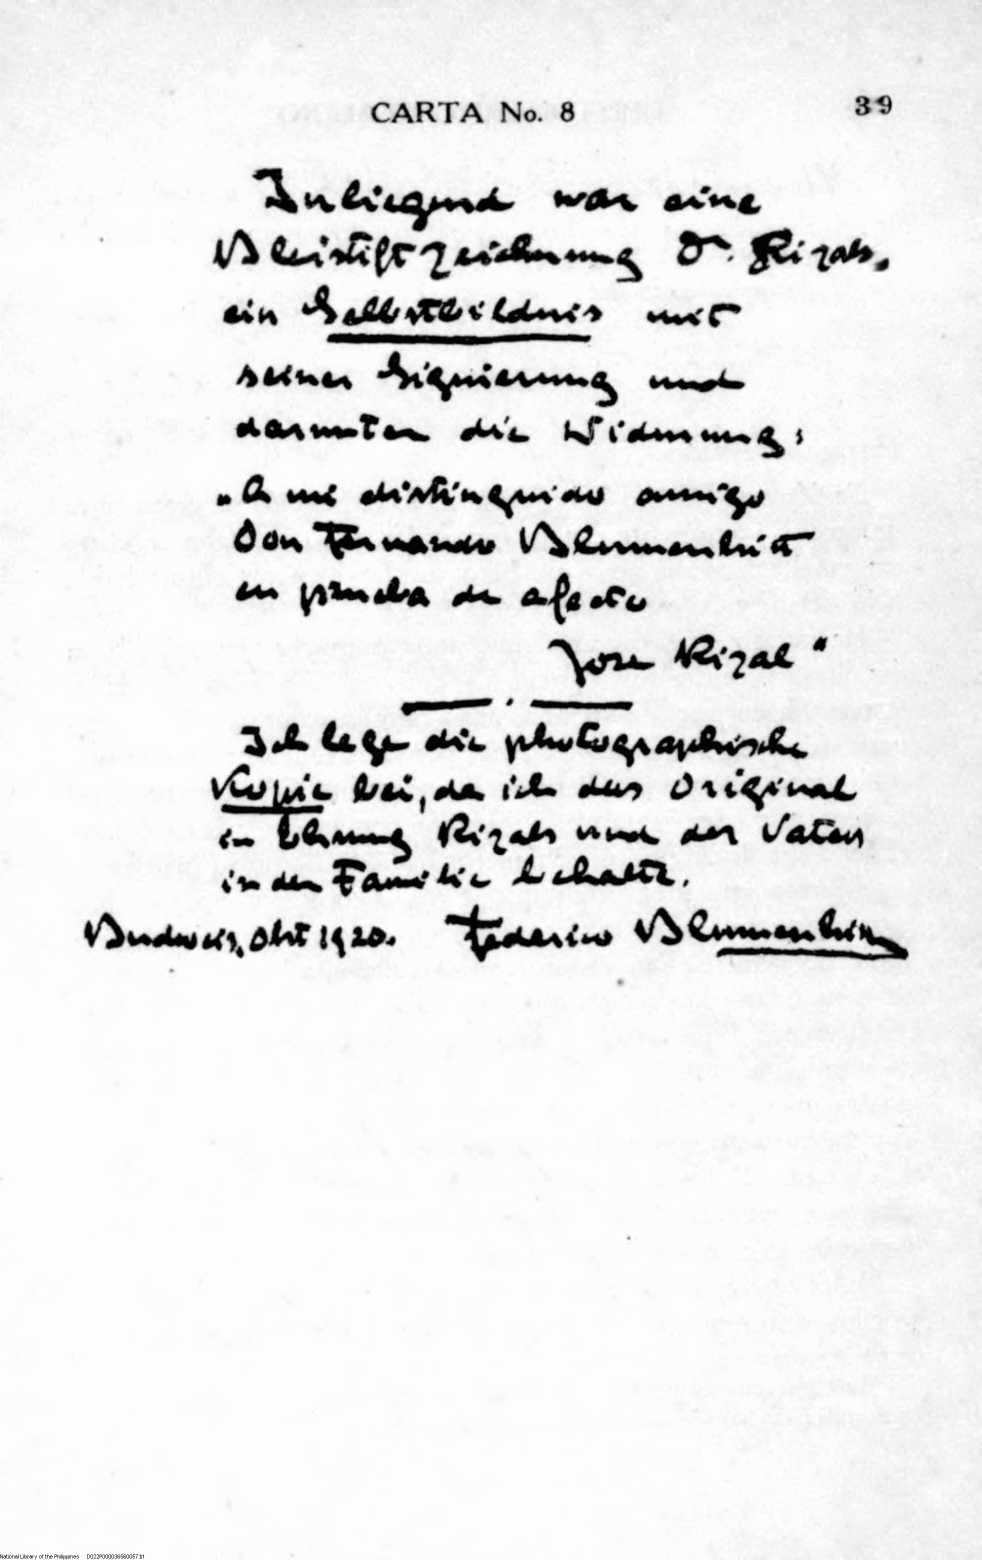 CARTA No. 8
39
Inliegend war eine
Bleistiftzeichnung Dr. Rizals,
ein Selbstbildnis mit
seiner Signierung und
darunter die Widmung:
„A mi distinguido amigo
Don Fernando Blumentritt
en prueba de afecto
Jose Rizal"
Ich lege die photographische
Kopie bei, da ich das Original
in Ehrung Rizals und des Vaters
in der Familie behalte.
Budweis, Okt 1920. Federico Blumentritt
National Library of the Philippines